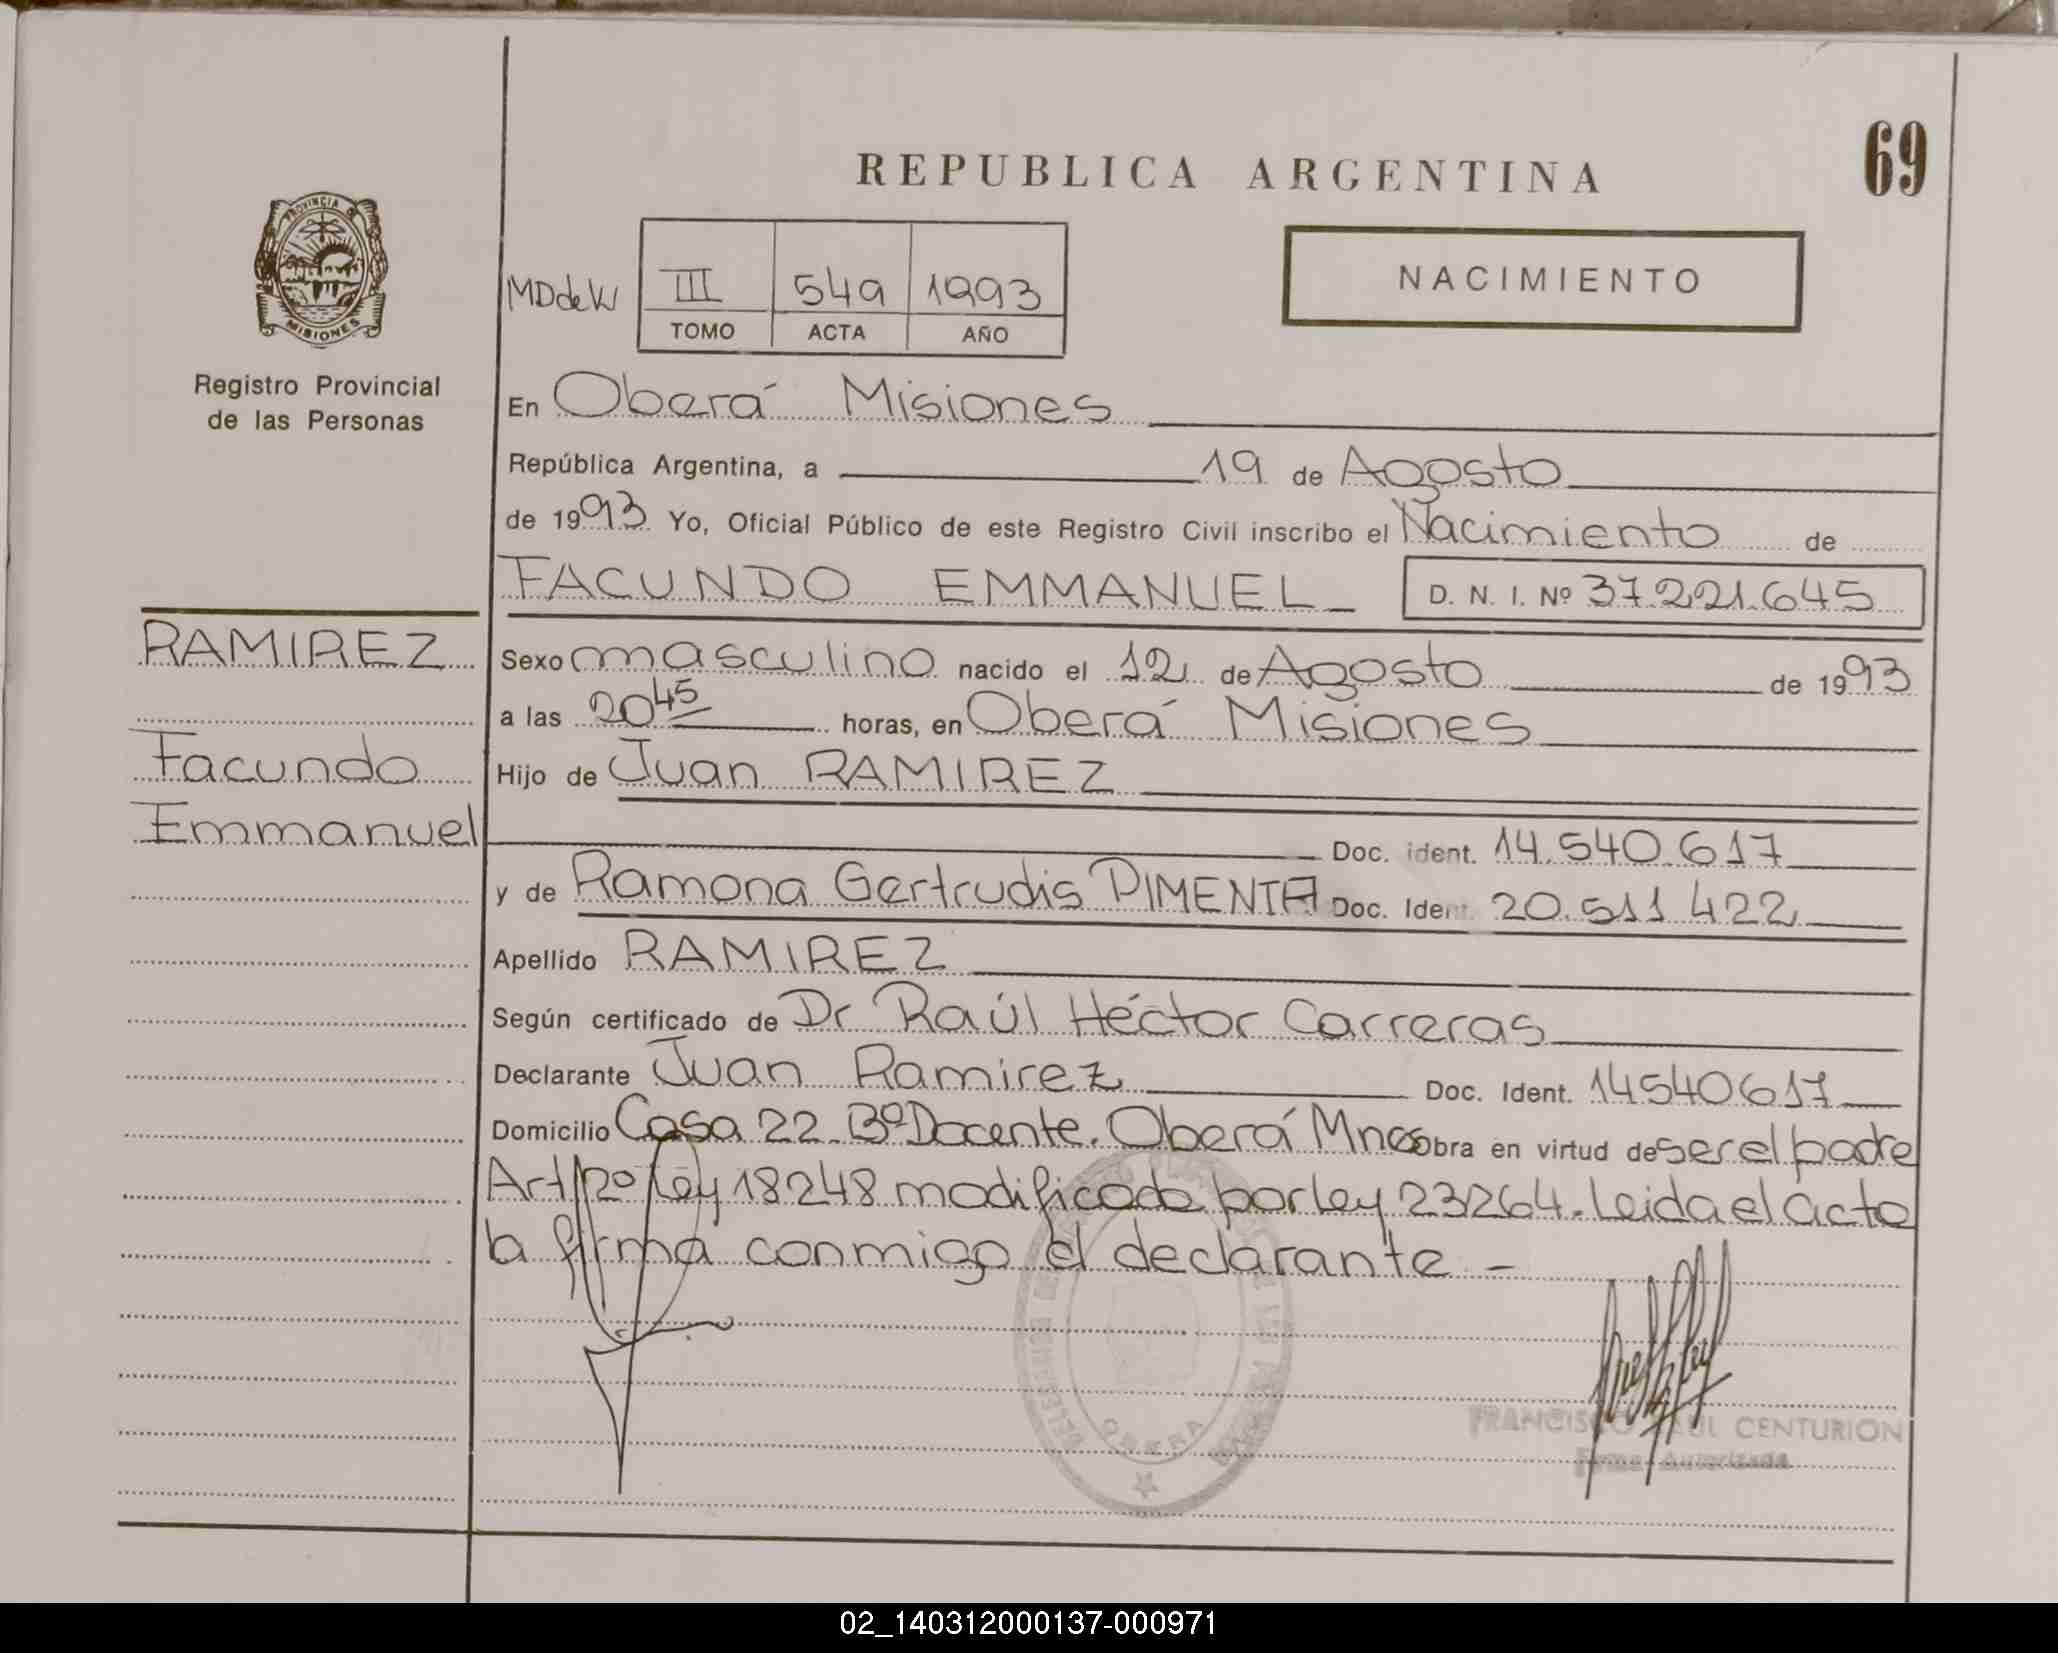 REPUBLICA ARGENTINA
69
PROVINCIA DE
MISIONES
Registro Provincial
de las Personas
MDdeW
III 549 1993
TOMO ACTA AÑO
NACIMIENTO
En Oberá Misiones
República Argentina, a 19 de Agosto
de 1993 Yo, Oficial Público de este Registro Civil inscribo el Nacimiento de
FACUNDO EMMANUEL D. N. I. Nº 37.221.645
RAMIREZ
Facundo
Emmanuel
Sexo masculino nacido el 12 de Agosto de 1993
a las 20 45 horas, en Oberá Misiones
Hijo de Juan RAMIREZ
Doc. ident. 14.540.617
y de Ramona Gertrudis PIMENTA Doc. Ident. 20.511.422
Apellido RAMIREZ
Según certificado de Dr Raúl Héctor Carreras
Declarante Juan Ramirez Doc. Ident. 14540617
Domicilio Casa 22 Bº Docente. Oberá Mnes obra en virtud de ser el padre
Art 12º Ley 18248 modificado por ley 23264. Leida el acta
la firma conmigo el declarante –
OBERA
FRANCISCO RAUL CENTURION
Firma Autorizada
02_140312000137-000971